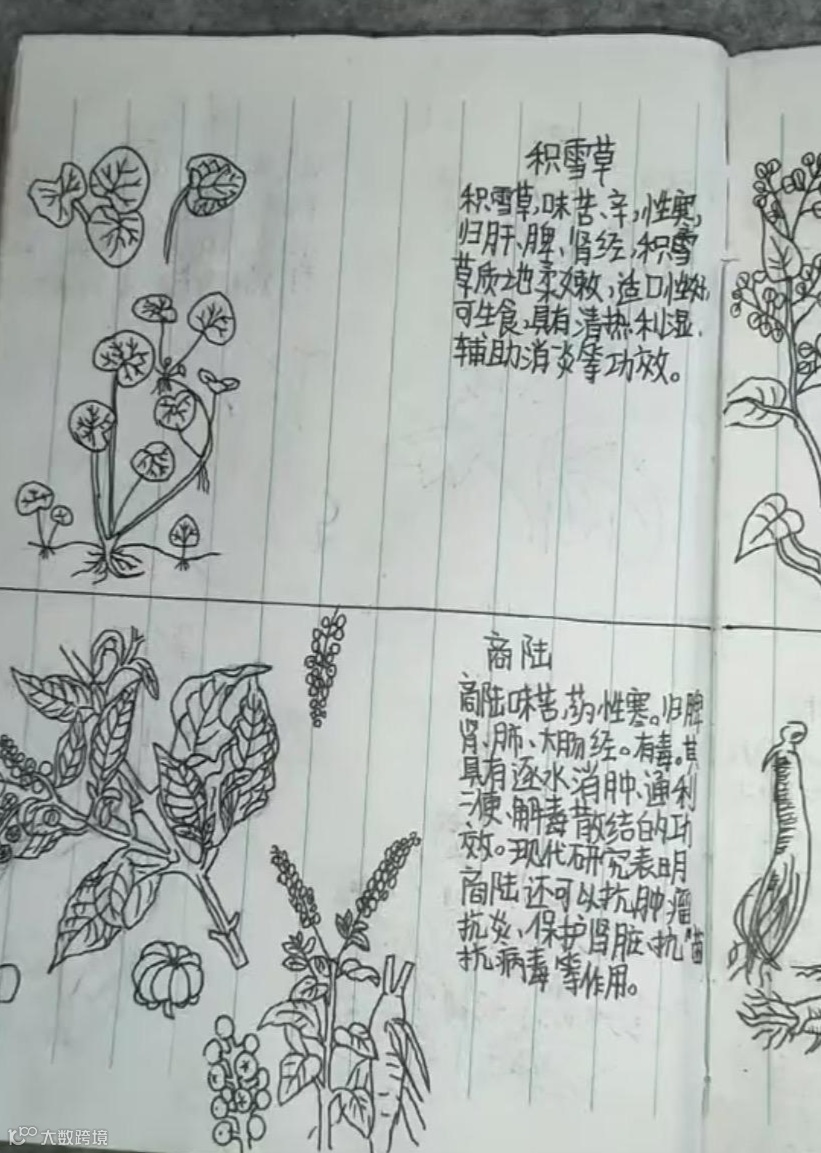 积雪草
积雪草,味苦、辛,性寒,
归肝、脾、肾经,积雪
草质地柔嫩,适口性好,
可生食,具有清热利湿、
辅助消炎等功效。
商陆
商陆味苦,药性寒。归脾
肾、肺、大肠经。有毒。其
具有逐水消肿、通利
二便、解毒散结的功
效。现代研究表明
商陆还可以抗肿瘤
抗炎、保护肾脏、抗菌
抗病毒等作用。
大数跨境